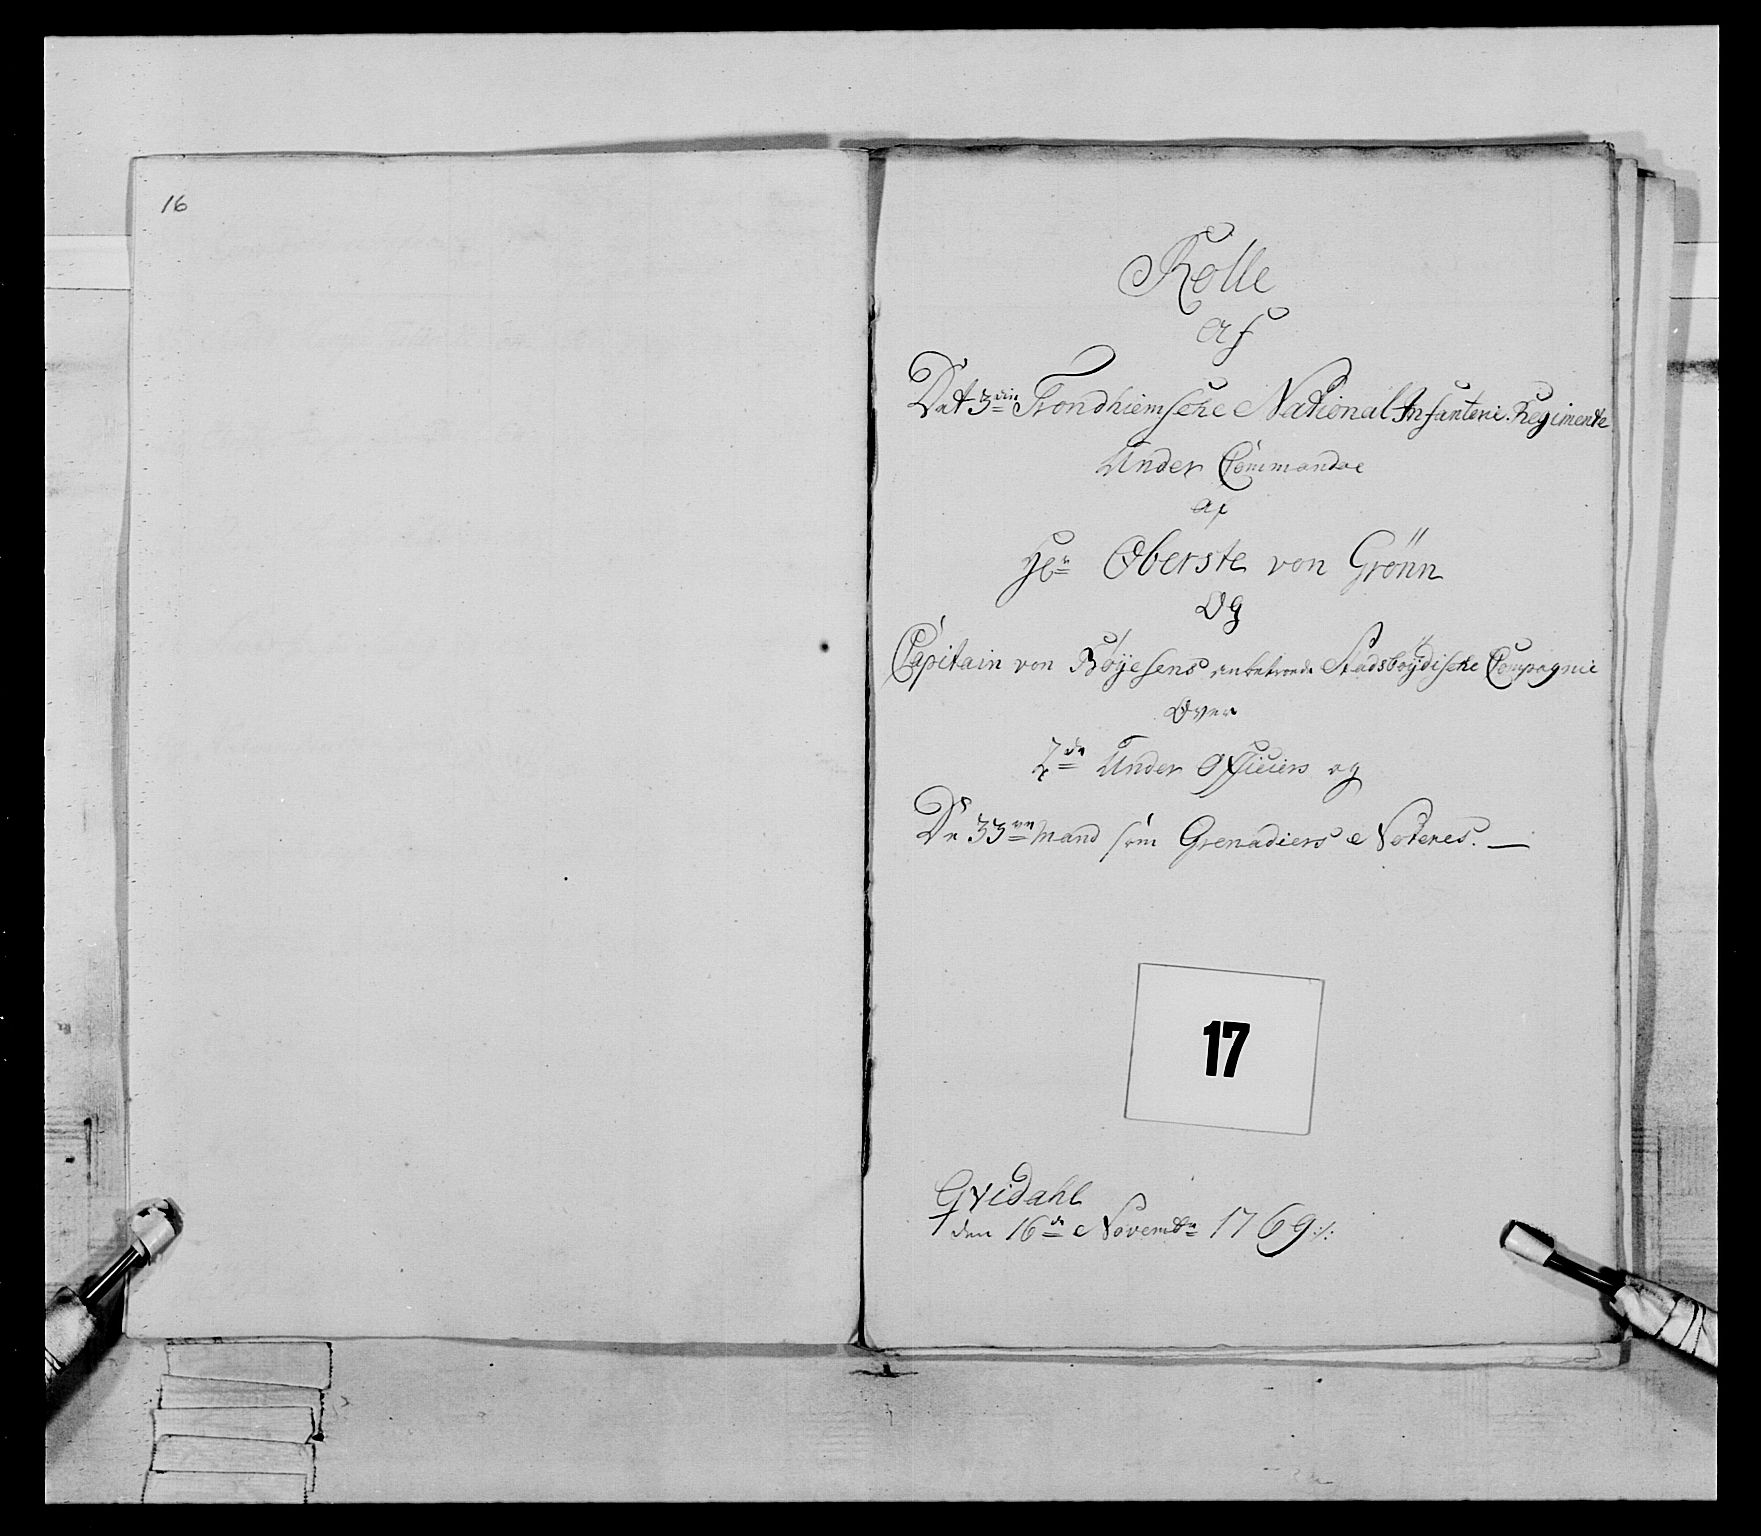 16
Rolle
af
Det 3die Trondhiemsche National Infanterie Regimente
Under Commandoe
af
Hr Oberste von Grönn
Og
Capitain von Böyesens anbetroede Stadsböÿdische Compagnie
Over
2de Under Officiers og
De 33ve Mand som Grenadiers Noteres. —
17
Qvidahl
den 16de Novembr 1769 ./.